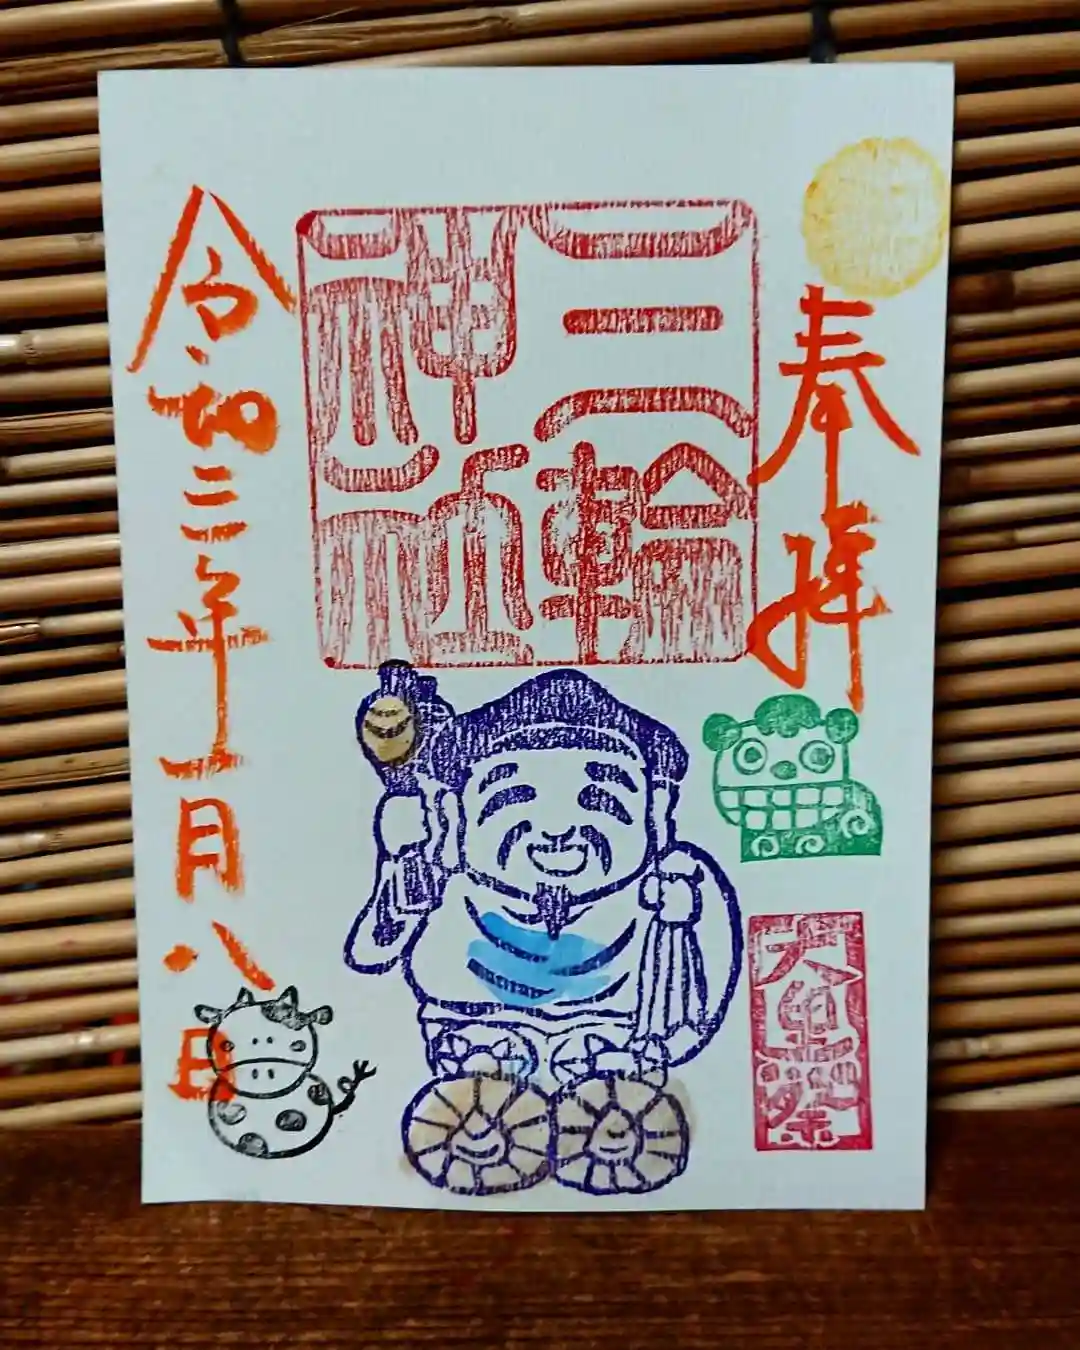 奉拝
三輪
神社
大黒祭
令和三年一月八日